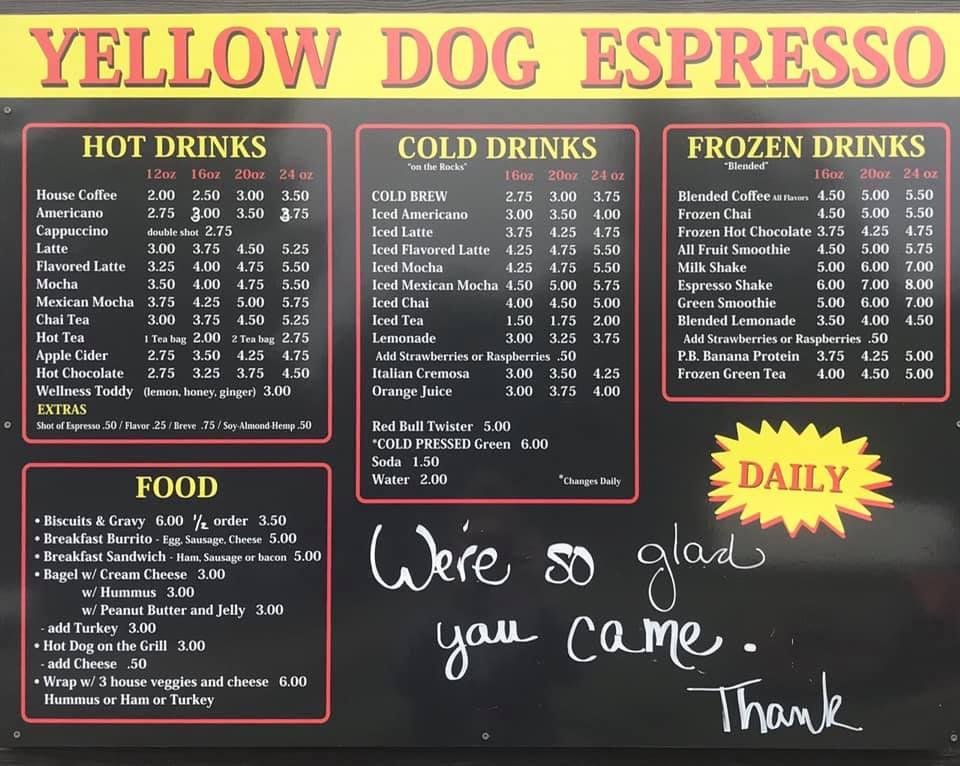 YELLOW DOG ESPRESSO
HOT DRINKS
12oz 16oz 20oz 24 oz
House Coffee 2.00 2.50 3.00 3.50
Americano 2.75 3.00 3.50 3.75
Cappuccino double shot 2.75
Latte 3.00 3.75 4.50 5.25
Flavored Latte 3.25 4.00 4.75 5.50
Mocha 3.50 4.00 4.75 5.50
Mexican Mocha 3.75 4.25 5.00 5.75
Chai Tea 3.00 3.75 4.50 5.25
Hot Tea 1 Tea bag 2.00 2 Tea bag 2.75
Apple Cider 2.75 3.50 4.25 4.75
Hot Chocolate 2.75 3.25 3.75 4.50
Wellness Toddy (lemon, honey, ginger) 3.00
EXTRAS
Shot of Espresso .50 / Flavor .25 / Breve .75 / Soy-Almond-Hemp .50
FOOD
• Biscuits & Gravy 6.00 1/2 order 3.50
• Breakfast Burrito - Egg, Sausage, Cheese 5.00
• Breakfast Sandwich - Ham, Sausage or bacon 5.00
• Bagel w/ Cream Cheese 3.00
w/ Hummus 3.00
w/ Peanut Butter and Jelly 3.00
- add Turkey 3.00
• Hot Dog on the Grill 3.00
- add Cheese .50
• Wrap w/ 3 house veggies and cheese 6.00
Hummus or Ham or Turkey
COLD DRINKS
"on the Rocks"
16oz 20oz 24 oz
COLD BREW 2.75 3.00 3.75
Iced Americano 3.00 3.50 4.00
Iced Latte 3.75 4.25 4.75
Iced Flavored Latte 4.25 4.75 5.50
Iced Mocha 4.25 4.75 5.50
Iced Mexican Mocha 4.50 5.00 5.75
Iced Chai 4.00 4.50 5.00
Iced Tea 1.50 1.75 2.00
Lemonade 3.00 3.25 3.75
Add Strawberries or Raspberries .50
Italian Cremosa 3.00 3.50 4.25
Orange Juice 3.00 3.75 4.00
Red Bull Twister 5.00
*COLD PRESSED Green 6.00
Soda 1.50
Water 2.00 *Changes Daily
FROZEN DRINKS
"Blended"
16oz 20oz 24 oz
Blended Coffee All Flavors 4.50 5.00 5.50
Frozen Chai 4.50 5.00 5.50
Frozen Hot Chocolate 3.75 4.25 4.75
All Fruit Smoothie 4.50 5.00 5.75
Milk Shake 5.00 6.00 7.00
Espresso Shake 6.00 7.00 8.00
Green Smoothie 5.00 6.00 7.00
Blended Lemonade 3.50 4.00 4.50
Add Strawberries or Raspberries .50
P.B. Banana Protein 3.75 4.25 5.00
Frozen Green Tea 4.00 4.50 5.00
DAILY
We're so glad
you came.
Thank